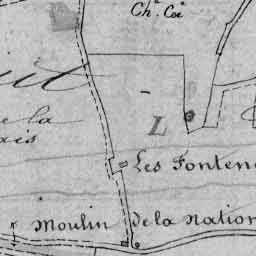 Ch.ᵉ Coi
L
de la
ais
Les Fonten
Moulin de la Nation